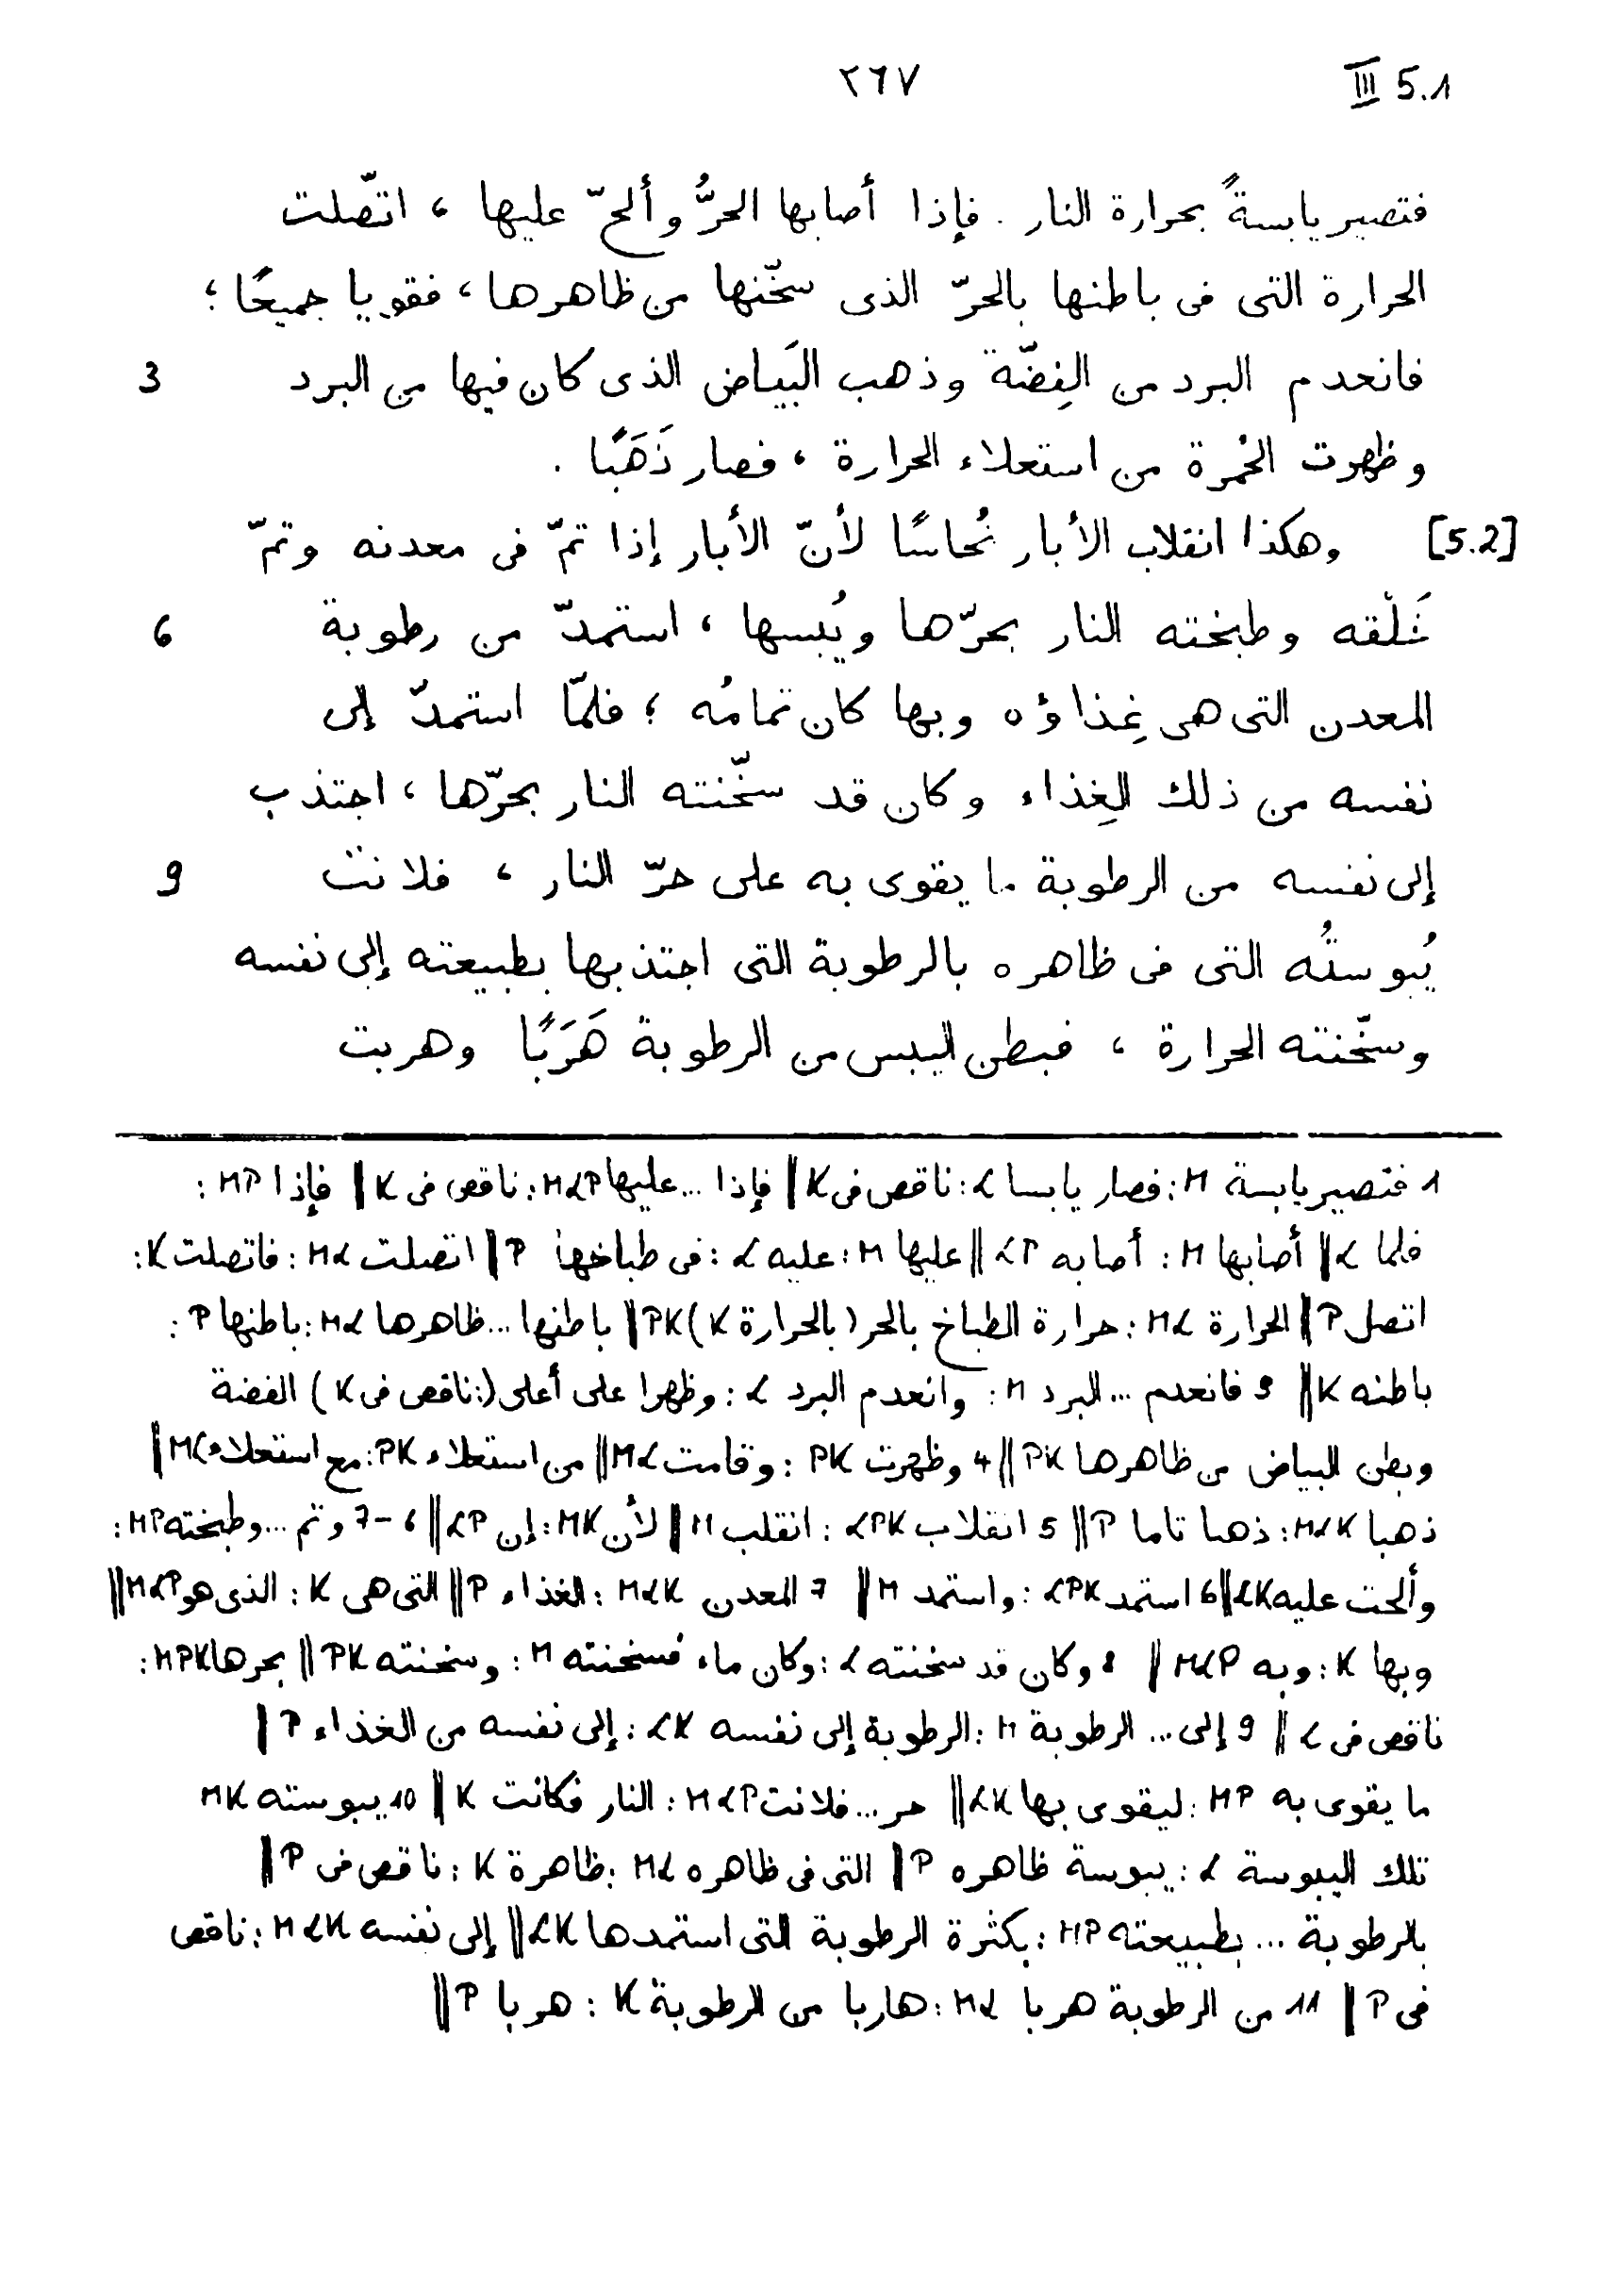 ٢٦٧ III 5.1
فتصير يابسةً بحرارة النار . فإذا أصابها الحرُّ وألحّ عليها ، اتّصلت
الحرارة التى فى باطنها بالحرّ الذى سخّنها من ظاهرها ، فقويا جميعًا ؛
فانعدم البرد من الفِضّة وذهب البَياض الذى كان فيها من البرد 3
وظهرت الحُمرة من استعلاء الحرارة ، فصار ذَهَبًا .
[5.2] وهكذا انقلاب الأبار نُحاسًا لأنّ الأبار إذا تمّ فى معدنه وتمّ
خَلْقه وطبخته النار بحرّها ويُبسها ، استمدّ من رطوبة 6
المعدن التى هى غِذاؤه وبها كان تمامُه ؛ فلمّا استمدّ إلى
نفسه من ذلك الغِذاء وكان قد سخّنته النار بحرّها ، اجتذب
إلى نفسه من الرطوبة ما يقوى به على حرّ النار ، فلانت 9
يُبوستُه التى فى ظاهره بالرطوبة التى اجتذبها بطبيعته إلى نفسه
وسخّنته الحرارة ، فبطن اليبس من الرطوبة هَرَبًا وهربت
1 فتصير يابسة M : فصار يابسا L : ناقص فى K || فإذا ... عليها MLP : ناقص فى K || فإذا MP :
فلما L || أصابها M : أصابه LP || عليها M : عليه L : فى طباخها P || اتصلت ML : فاتصلت K :
اتصل P || الحرارة ML : حرارة الطباخ بالحر (بالحرارة K) PK || باطنها ... ظاهرها ML : باطنها P :
باطنه K || 3 فانعدم ... البرد M : وانعدم البرد L : وظهرا على أعلى (: ناقص فى K) الفضة
وبطن البياض من ظاهرها PK || 4 وظهرت PK : وقامت ML || من استعلاء PK : مع استعلاء ML ||
ذهبا MLK : ذهبا تاما P || 5 انقلاب LPK : انقلب M || لأن MK : إن LP || 6-7 وتم ... وطبخته MP :
وألحت عليه LK || 6 استمد LPK : واستمد M || 7 المعدن MLK : الغذاء P || التى هى K : الذى هو MLP ||
وبها K : وبه MLP || 8 وكان قد سخنته L : وكان ماء فسخنته M : وسخنته PK || بحرها MPK :
ناقص فى L || 9 إلى ... الرطوبة M : الرطوبة إلى نفسه LK : إلى نفسه من الغذاء P ||
ما يقوى به MP : ليقوى بها LK || حر ... فلانت MLP : النار فكانت K || 10 يبوسته MK
تلك اليبوسة L : يبوسة ظاهره P || التى فى ظاهره ML : ظاهرة K : ناقص فى P ||
بالرطوبة ... بطبيعته MP : بكثرة الرطوبة التى استمدها LK || إلى نفسه MLK : ناقص
فى P || 11 من الرطوبة هربا ML : هاربا من الرطوبة K : هربا P ||